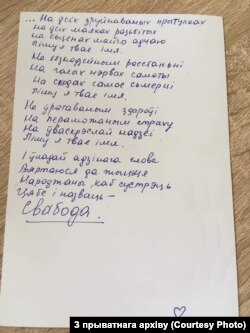 ... На ўсіх зруйнаваных прытулках
На ўсіх маяках разбітых
На сьценах майго адчаю
Пішу я тваё імя.
На безнадзейным росстаньні
На голых нэрвах самоты
На сходах самое сьмерці
Пішу я тваё імя.
На вяртаным здароўі
На пераможаным страху
На ўваскрэслай надзеі
Пішу я тваё імя.
І ўладай адзінага слова
Вяртаюся да жыцьця
Народжаны, каб сустрэць
Цябе і назваць –
Свабода.
З прыватнага архіву (Courtesy Photo)